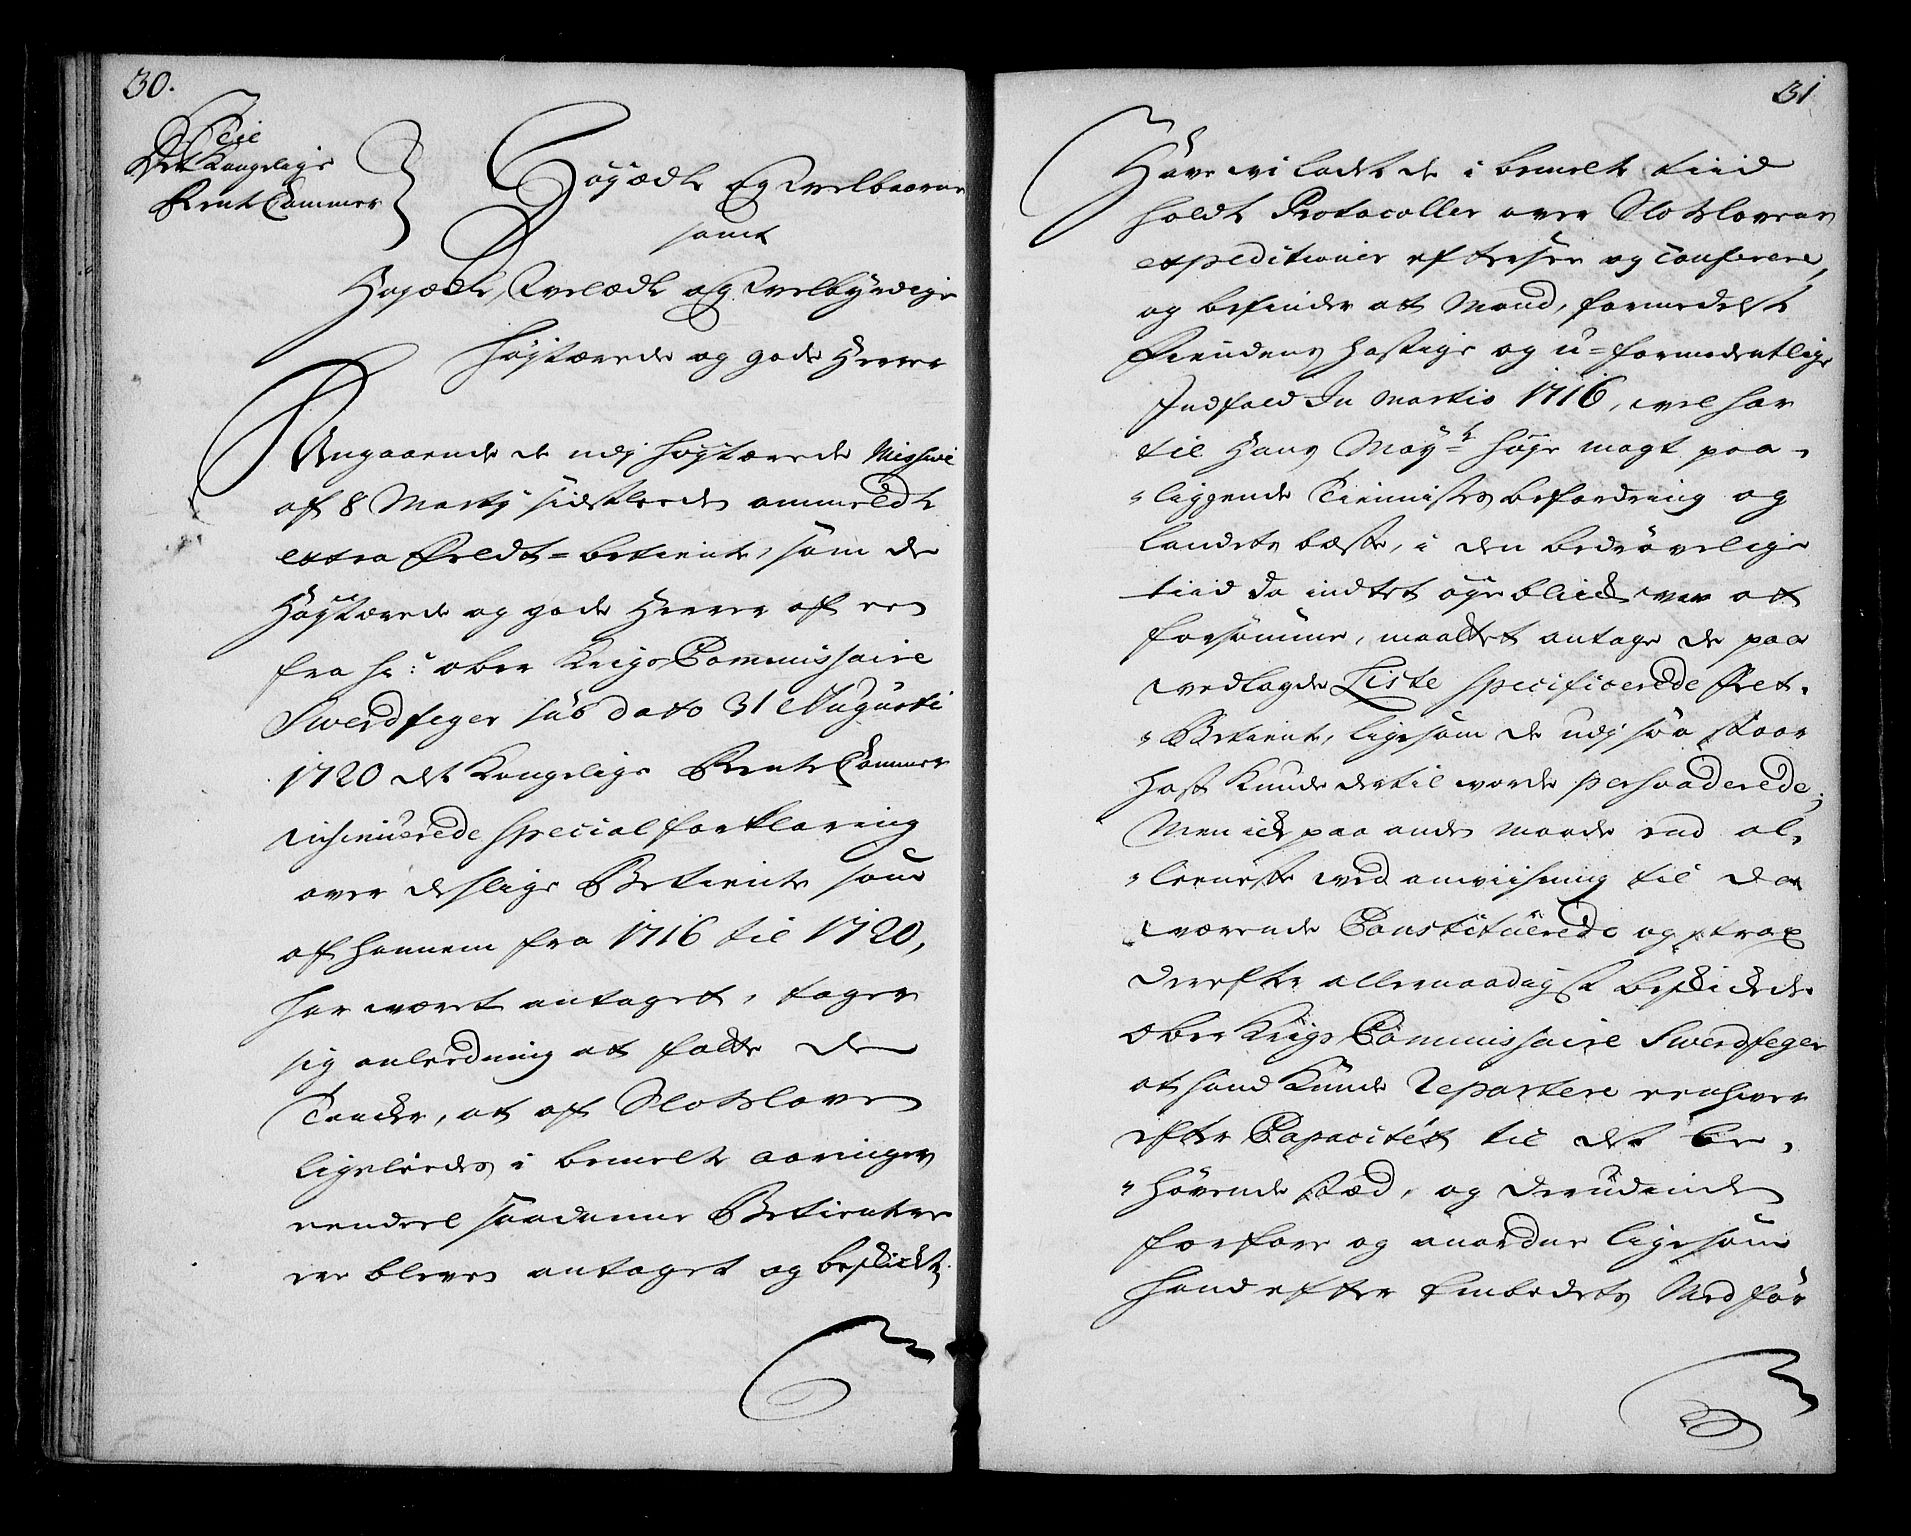 30.
Til
Det Kongelige
Rente Cammer
Høgædle og Velbaarne
samt
Høgædle, Velædle og Velbyrdige
høgstærede og gode Herrer
Angaaende de udj høgstærede Missive
af 8 Martij sidstleeden ommeldte
extra Feldt=betiente, som de
Høgstærede og gode Herrer af een
fra Hr: ober Krigs Commissaire
Swerdfeger sub dato 31 Augusti
1720 det Kongelige Rente Cammer
insinuerede special forklaring
over deslige Betiente som
af hannem fra 1716 til 1720,
har været antaget, tager
sig anleedning at fatte de
Tancker, at af Slotsloven
ligeleedes i bemelte aaringer
eendeel saadanne Betientere
ere bleven antaget og beskicket,
31
Have vi ladet de i bemelte tiid
holdte Protocoller over Slotslovens
expeditioner eftersee og conferere,
og befinder att Mand, formedelst
Fiendens hastige og u=formodentlige
Indfald In Martio 1716, vel har
til Hans Mayts høye magt paa-
liggende Tienistes befordring og
landets beste, i den bedrøvelige
tiid da indtet øgeblick var at
forsømme, maattet antage de paa
vedlagde Liste specificerede Felt-
Betiente, ligesom de udj saa stoor
Hast kunde dertil vorde persvaderede;
Men icke paa anden maade end al-
leeneste ved anviisning til da
værende Constituerede og strax
derefter allernaadigst beskickede
Ober Krigs Commissaire Swerdfeger
at hand kunde repartere eenhver
efter Capacitet til det be-
høvende stæd, og derudinden
forfare og anordne ligesom
hand efter Embedets Medfør